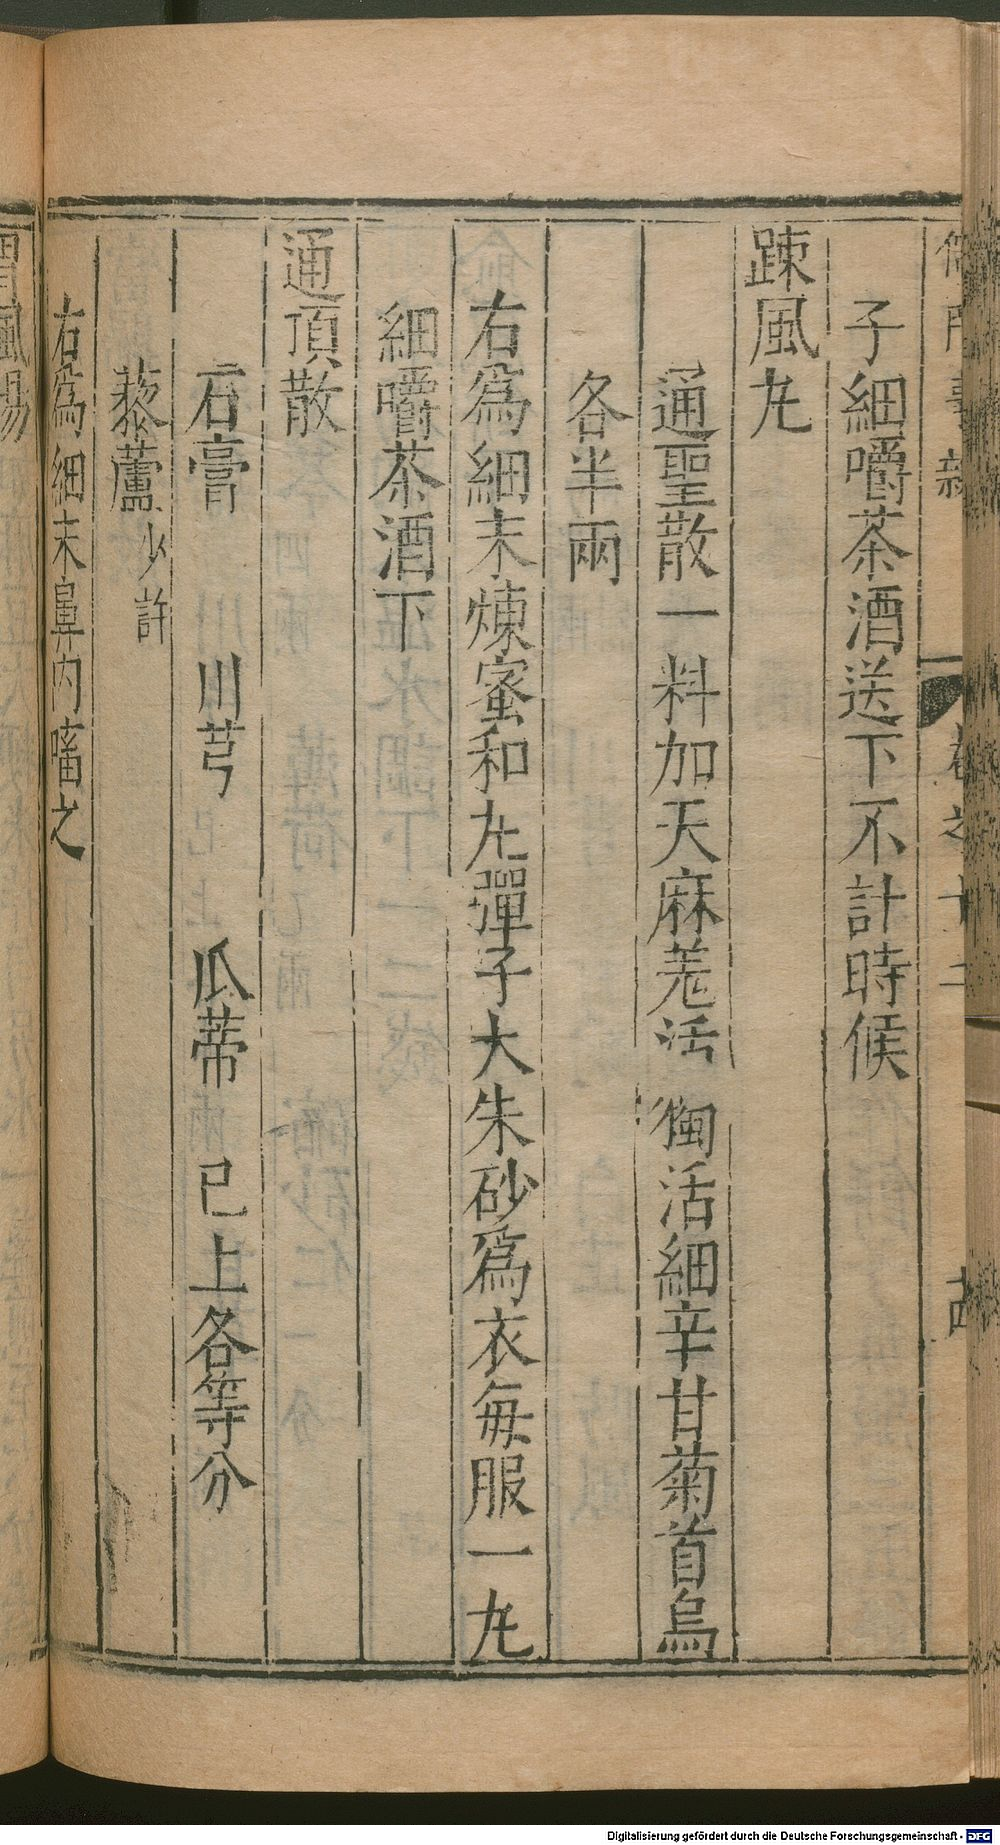 子細嚼茶酒送下不計時候
踈風丸
通聖散一料加天麻羗活獨活細辛甘菊首烏
各半兩
右爲細末煉蜜和丸彈子大朱砂爲衣每服一丸
細嚼茶酒下
通頂散
石膏 川芎 瓜蒂 已上各等分
藜蘆少許
右爲細末鼻内㗜之
Digitalisierung gefördert durch die Deutsche Forschungsgemeinschaft - DFG